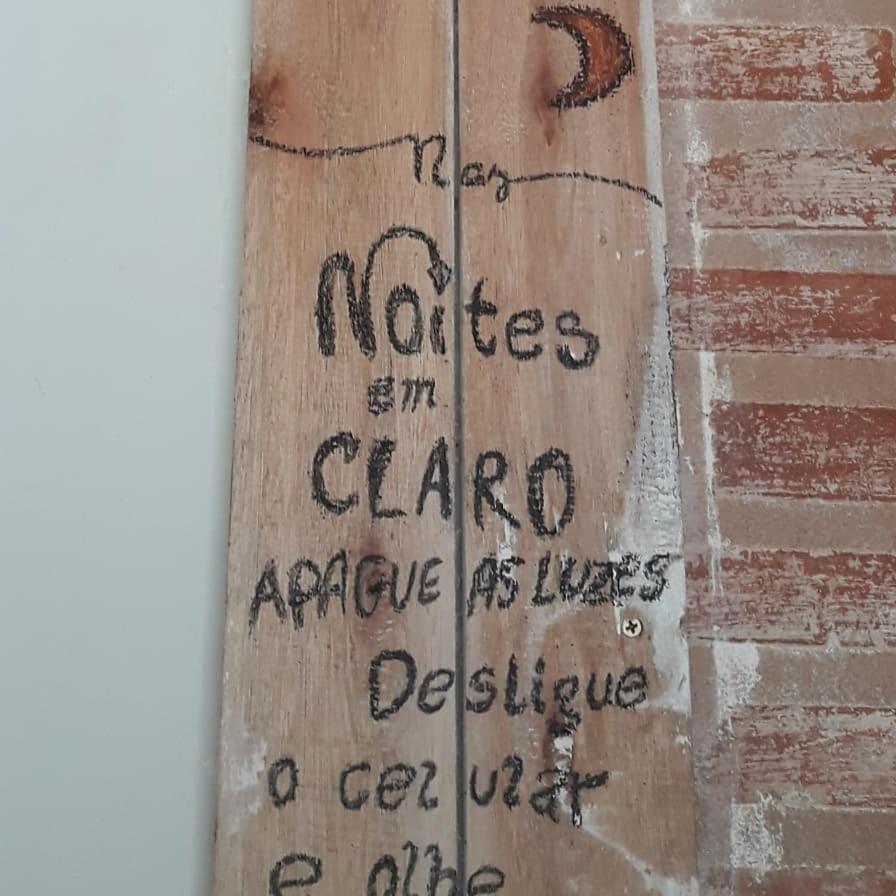 Nas
Noites
em
CLARO
APAGUE AS LUZES
Desligue
o celular
e olhe